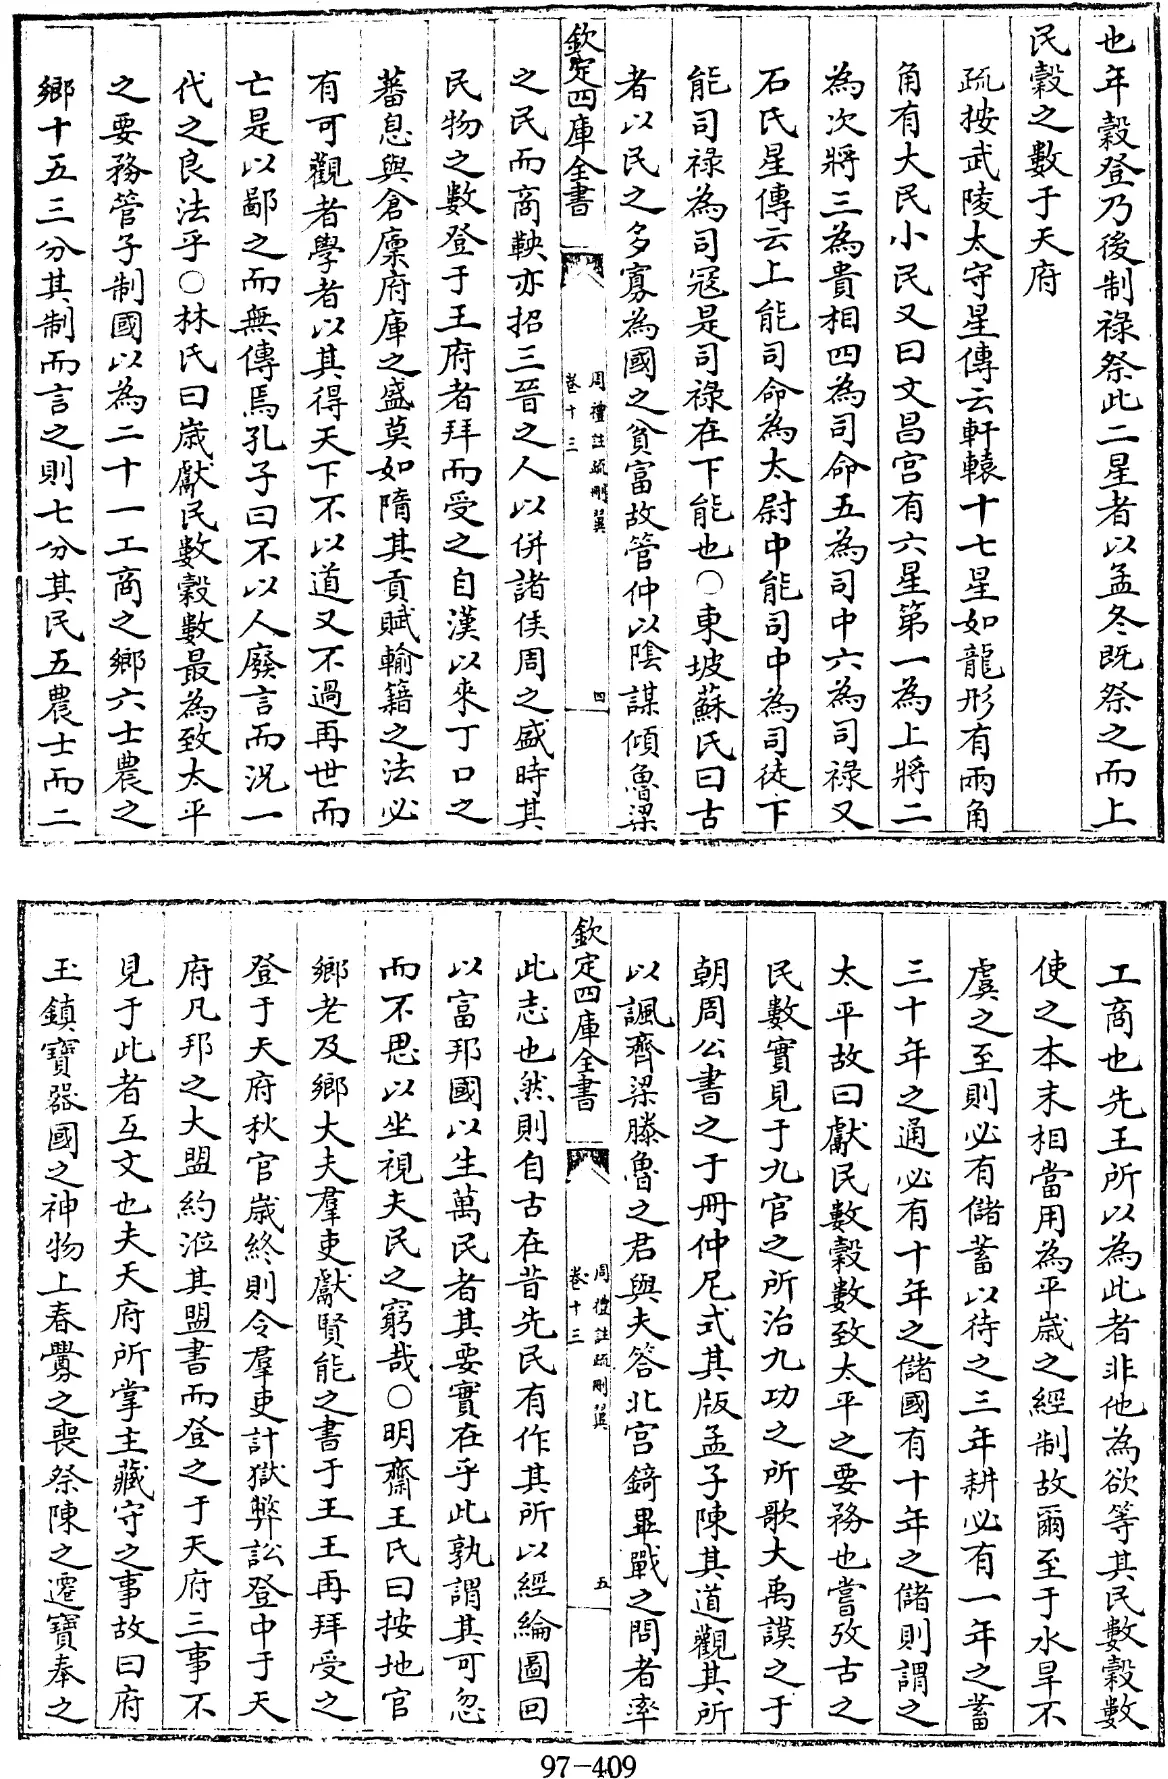 也年穀登乃後制祿祭此二星者以孟冬既祭之而上
民穀之數于天府
疏按武陵太守星傳云軒轅十七星如龍形有兩角
角有大民小民又曰文昌宮有六星第一為上將二
為次將三為貴相四為司命五為司中六為司祿又
石氏星傳云上能司命為太尉中能司中為司徒下
能司祿為司冦是司祿在下能也○東坡蘇氏曰古
者以民之多寡為國之貧富故管仲以陰謀傾魯梁
欽定四庫全書
周禮註疏刪翼
卷十三
四
之民而商鞅亦招三晉之人以併諸侯周之盛時其
民物之數登于王府者拜而受之自漢以來丁口之
蕃息與倉廩府庫之盛莫如隋其貢賦輸籍之法必
有可觀者學者以其得天下不以道又不過再世而
亡是以鄙之而無傳焉孔子曰不以人廢言而況一
代之良法乎○林氏曰歳獻民數穀數最為致太平
之要務管子制國以為二十一工商之鄉六士農之
鄉十五三分其制而言之則七分其民五農士而二
工商也先王所以為此者非他為欲等其民數穀數
使之本末相當用為平歳之經制故爾至于水旱不
虞之至則必有儲蓄以待之三年耕必有一年之蓄
三十年之通必有十年之儲國有十年之儲則謂之
太平故曰獻民數穀數致太平之要務也嘗攷古之
民數實見于九官之所治九功之所歌大禹謨之于
朝周公書之于冊仲尼式其版孟子陳其道觀其所
以諷齊梁滕魯之君與夫答北宮錡畢戰之問者率
欽定四庫全書
周禮註疏刪翼
卷十三
五
此志也然則自古在昔先民有作其所以經綸圖回
以富邦國以生萬民者其要實在乎此孰謂其可忽
而不思以坐視夫民之窮哉○明齋王氏曰按地官
鄉老及鄉大夫羣吏獻賢能之書于王王再拜受之
登于天府秋官歳終則令羣吏計獄弊訟登中于天
府凡邦之大盟約涖其盟書而登之于天府三事不
見于此者互文也夫天府所掌主藏守之事故曰府
玉鎮寶器國之神物上春釁之喪祭陳之遷寶奉之
97-409